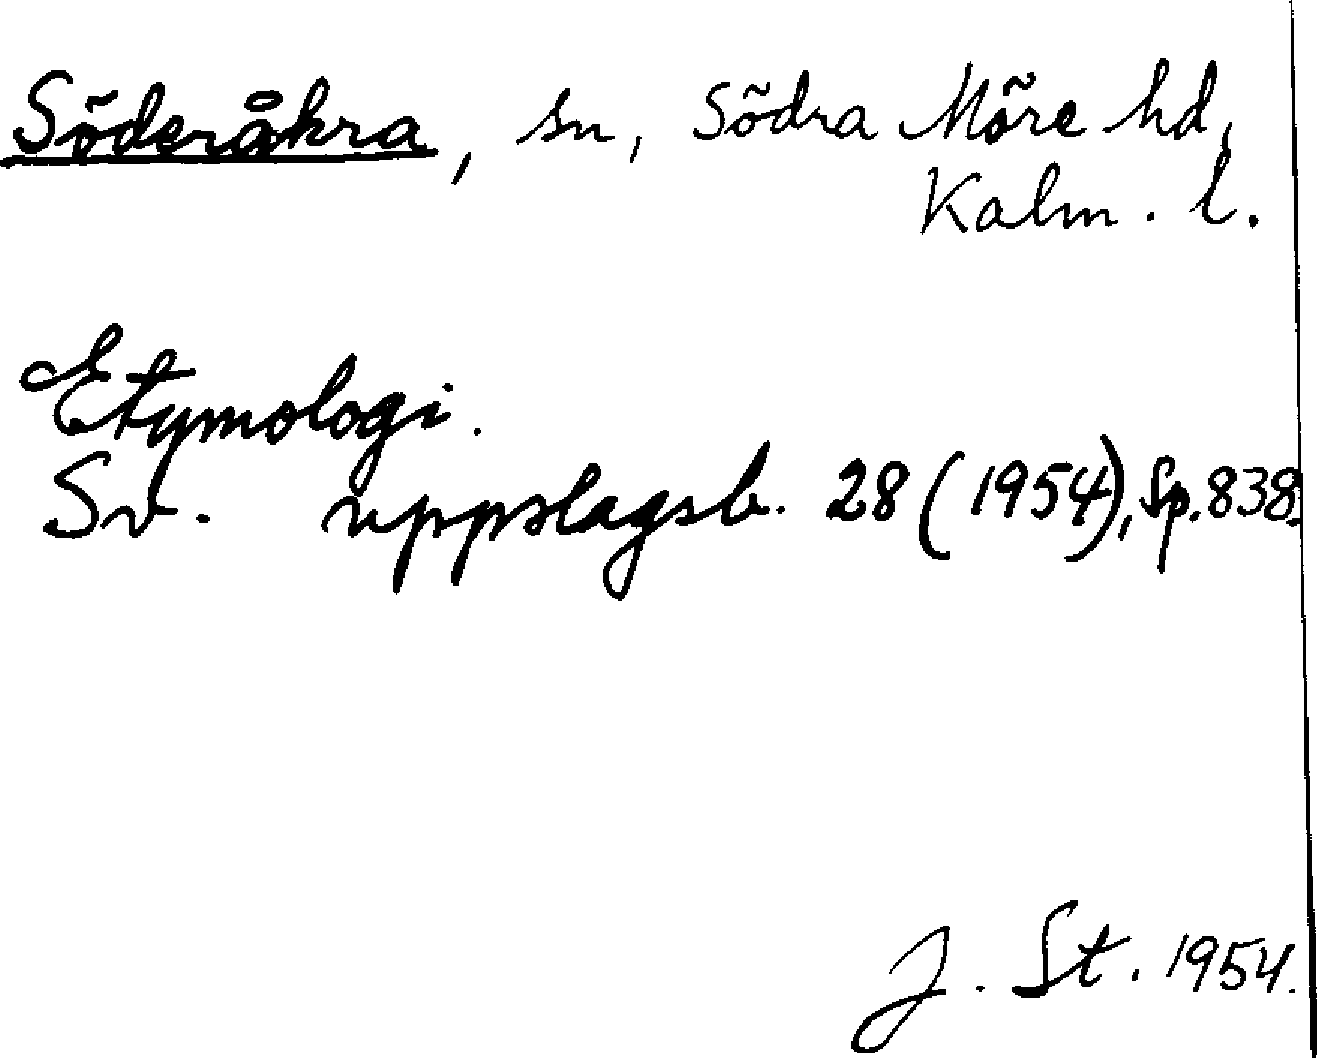 Söderåkra, sn, Södra Möre hd,
Kalm. l.
Etymologi.
Sv. uppslagsb. 28 (1954), sp. 838.
J. St. 1954.